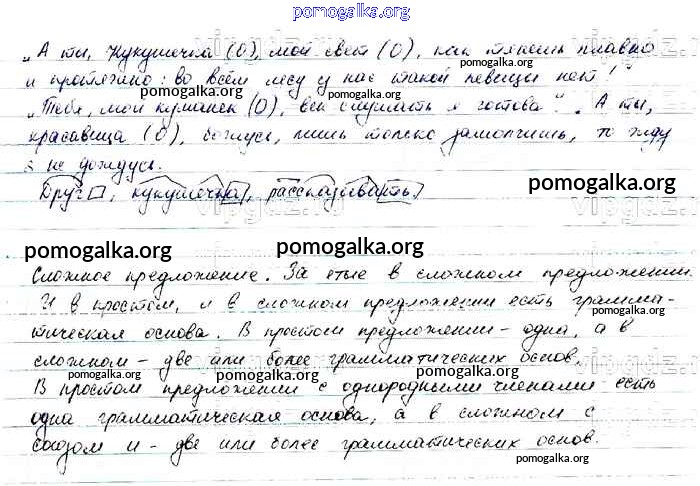 pomogalka.org
„А ты, Кукушечка (О), мой свет (О), как тянешь плавно
и протяжно: во всём лесу у нас такой певицы нет!“
„Тебя, мой куманек (О), век слушать я готова“. „А ты,
красавица (О), божусь, лишь только замолчишь, то жду
не дождусь.
Друг, кукушечка, рассказывать.
pomogalka.org
pomogalka.org
pomogalka.org
Сложное предложение. Запятые в сложном предложении.
И в простом, и в сложном предложении есть грамма-
тическая основа. В простом предложении – одна, а в
сложном – две или более грамматических основ.
В простом предложении с однородными членами есть
одна грамматическая основа, а в сложном с
союзом и – две или более грамматических основ.
pomogalka.org